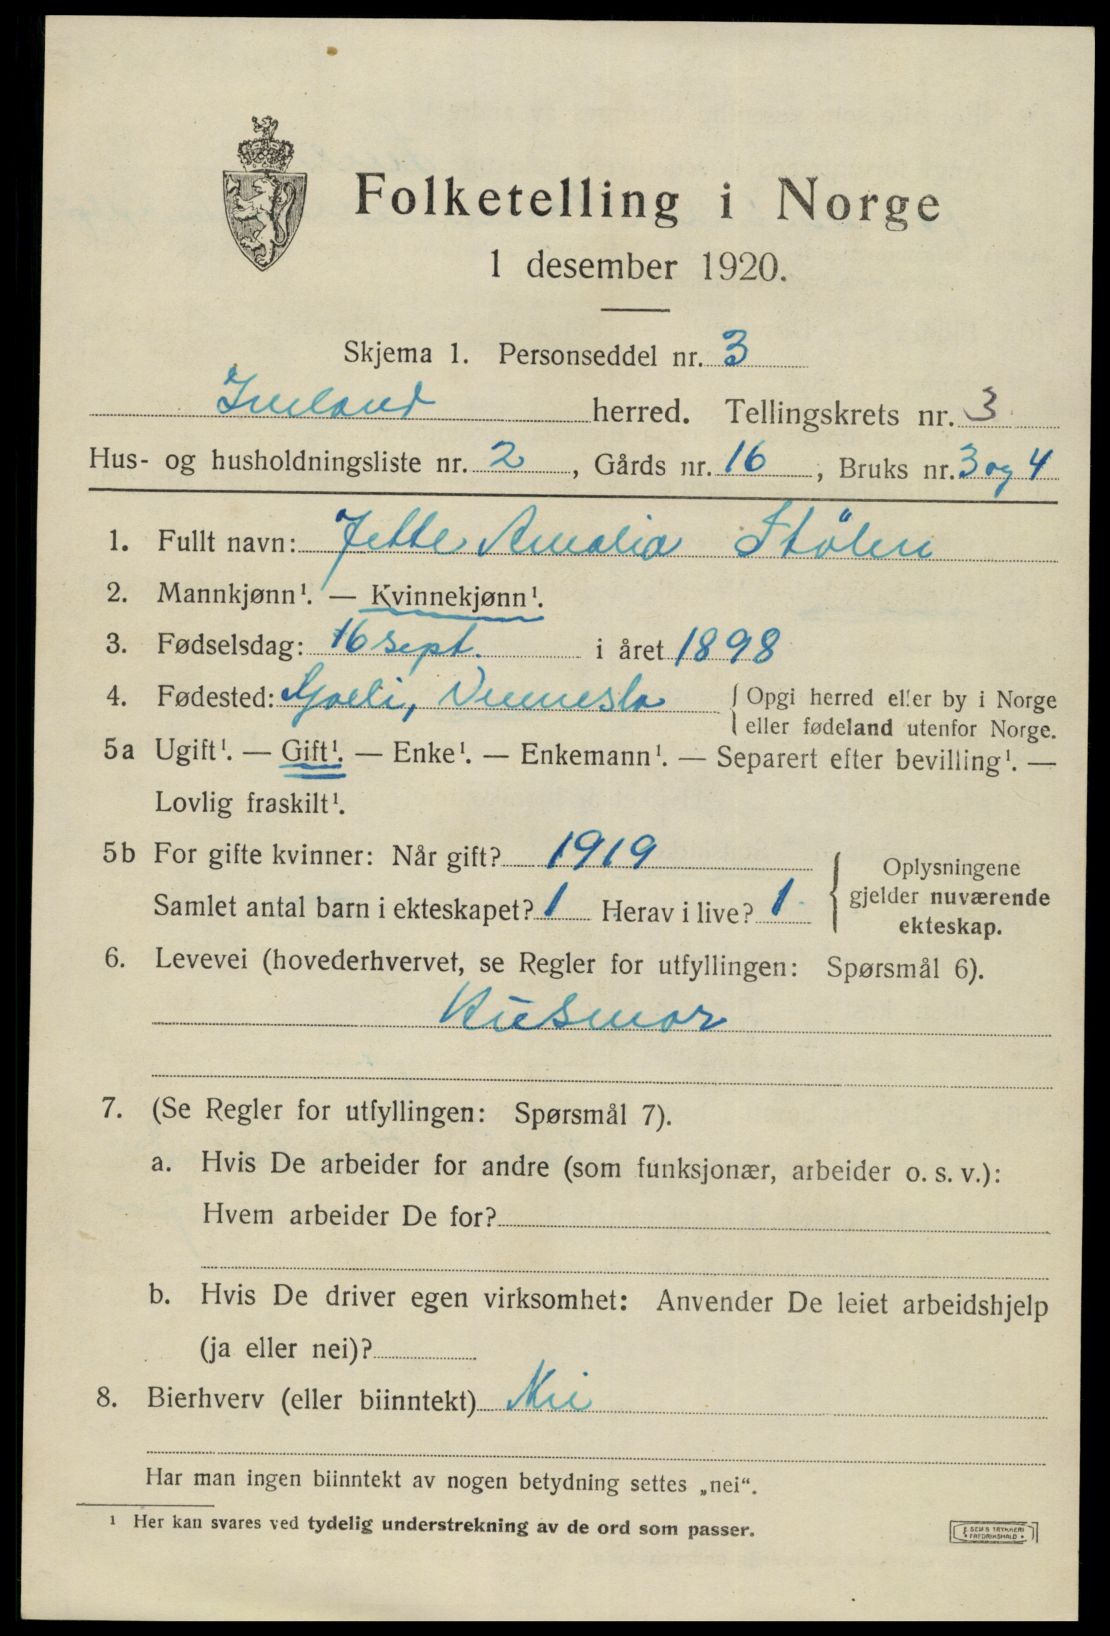 Folketelling i Norge
1 desember 1920.
Skjema 1. Personseddel nr. 3
Iveland herred. Tellingskrets nr. 3
Hus- og husholdningsliste nr. 2, Gårds nr. 16, Bruks nr. 3 og 4
1. Fullt navn: Jette Amalia Stölen
2. Mannkjønn¹. — Kvinnekjønn¹.
3. Fødselsdag: 16 sept. i året 1898
4. Fødested: Vennesla { Opgi herred eller by i Norge
eller fødeland utenfor Norge.
5a Ugift¹. — Gift¹. — Enke¹. — Enkemann¹. — Separert efter bevilling¹. —
Lovlig fraskilt¹.
5b For gifte kvinner: Når gift? 1919
Samlet antal barn i ekteskapet? 1 Herav i live? 1
{ Oplysningene
gjelder nuværende
ekteskap.
6. Levevei (hovederhvervet, se Regler for utfyllingen: Spørsmål 6).
Husmor
7. (Se Regler for utfyllingen: Spørsmål 7).
a. Hvis De arbeider for andre (som funksjonær, arbeider o. s. v.):
Hvem arbeider De for?
b. Hvis De driver egen virksomhet: Anvender De leiet arbeidshjelp
(ja eller nei)?
8. Bierhverv (eller biinntekt) Nei
Har man ingen biinntekt av nogen betydning settes „nei“.
¹ Her kan svares ved tydelig understrekning av de ord som passer.
E SEMS TRYKKERI
FREDRIKSHALD